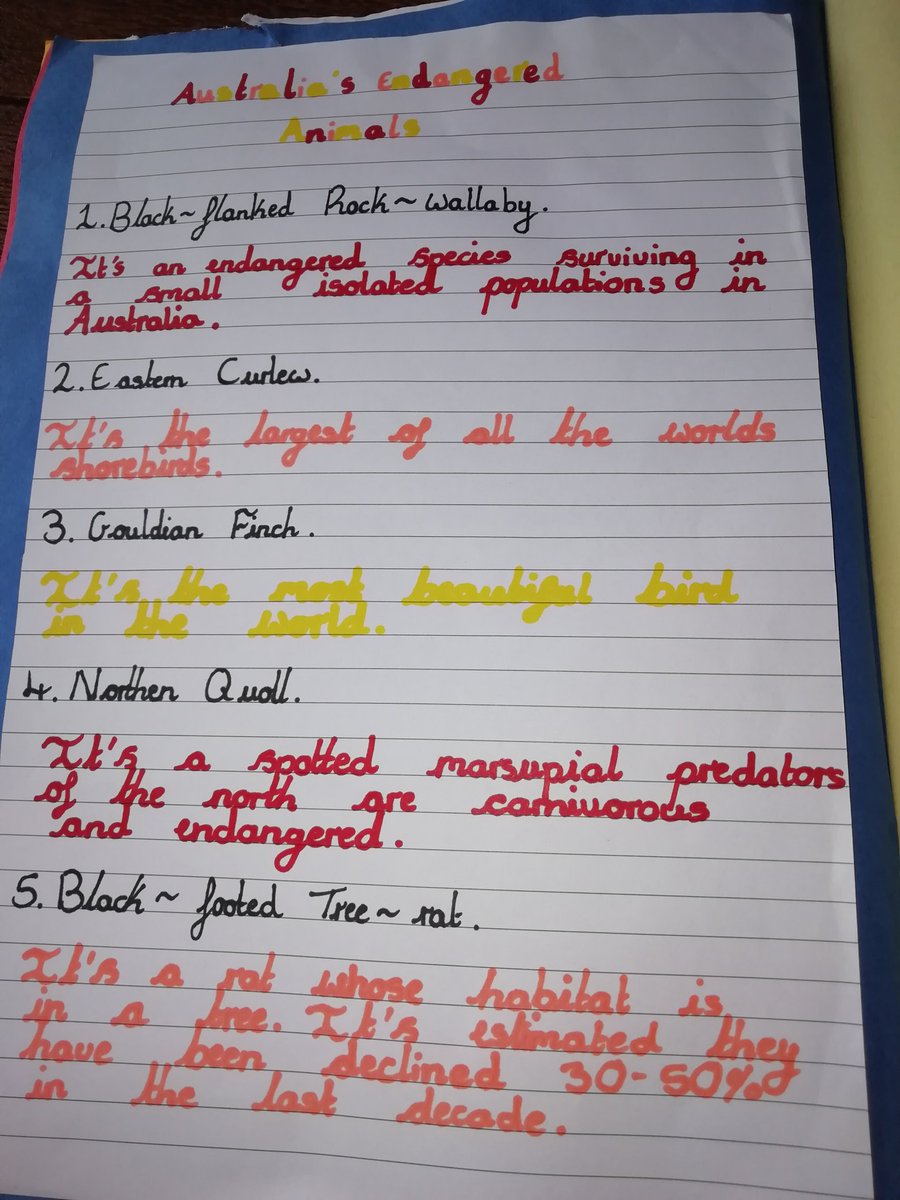 Australia's Endangered
Animals
1. Black~flanked Rock~wallaby.
It's an endangered species surviving in
a small isolated populations in
Australia.
2. Eastern Curlew.
It's the largest of all the worlds
shorebirds.
3. Gouldian Finch.
It's the most beautiful bird
in the world.
4. Northen Quoll.
It's a spotted marsupial predators
of the north are carnivorous
and endangered.
5. Black~footed Tree~rat.
It's a rat whose habitat is
in a tree. It's estimated they
have been declined 30-50%
in the last decade.